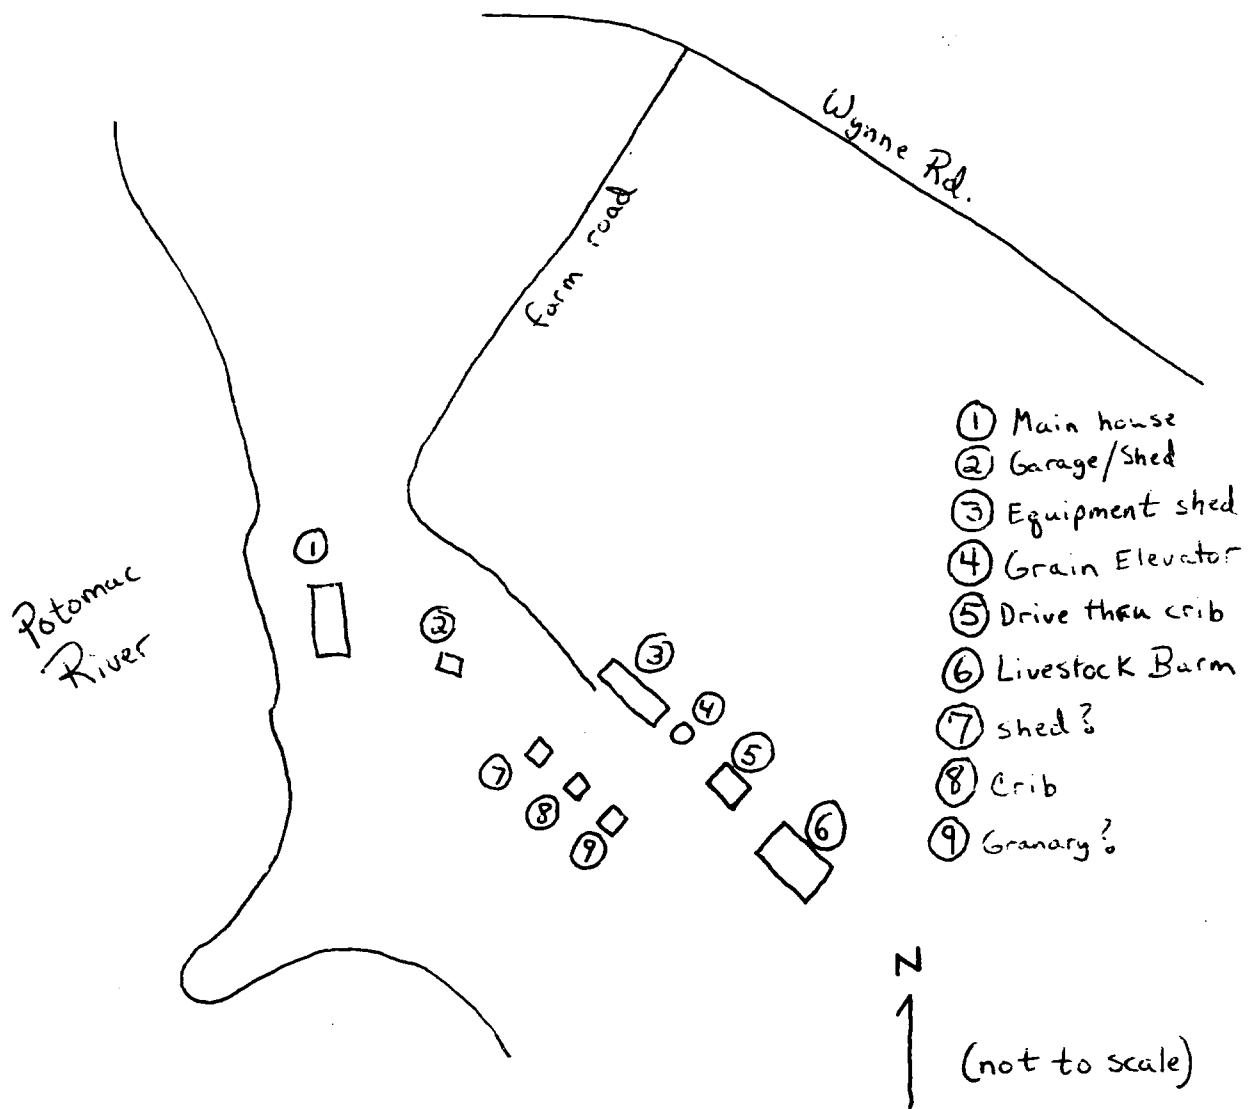 Wynne Rd.
farm road
Potomac
River
① Main house
② Garage/Shed
③ Equipment shed
④ Grain Elevator
⑤ Drive thru crib
⑥ Livestock Barm
⑦ shed?
⑧ Crib
⑨ Granary?
①
②
③
④
⑤
⑥
⑦
⑧
⑨
N
(not to scale)